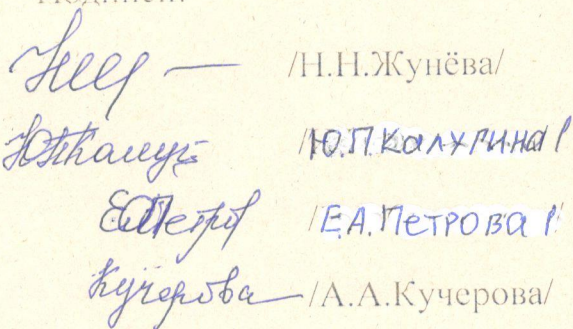 /Н.Н.Жунёва/
/Ю.П.Калугина/
/Е.А.Петрова/
Кучерова /А.А.Кучерова/